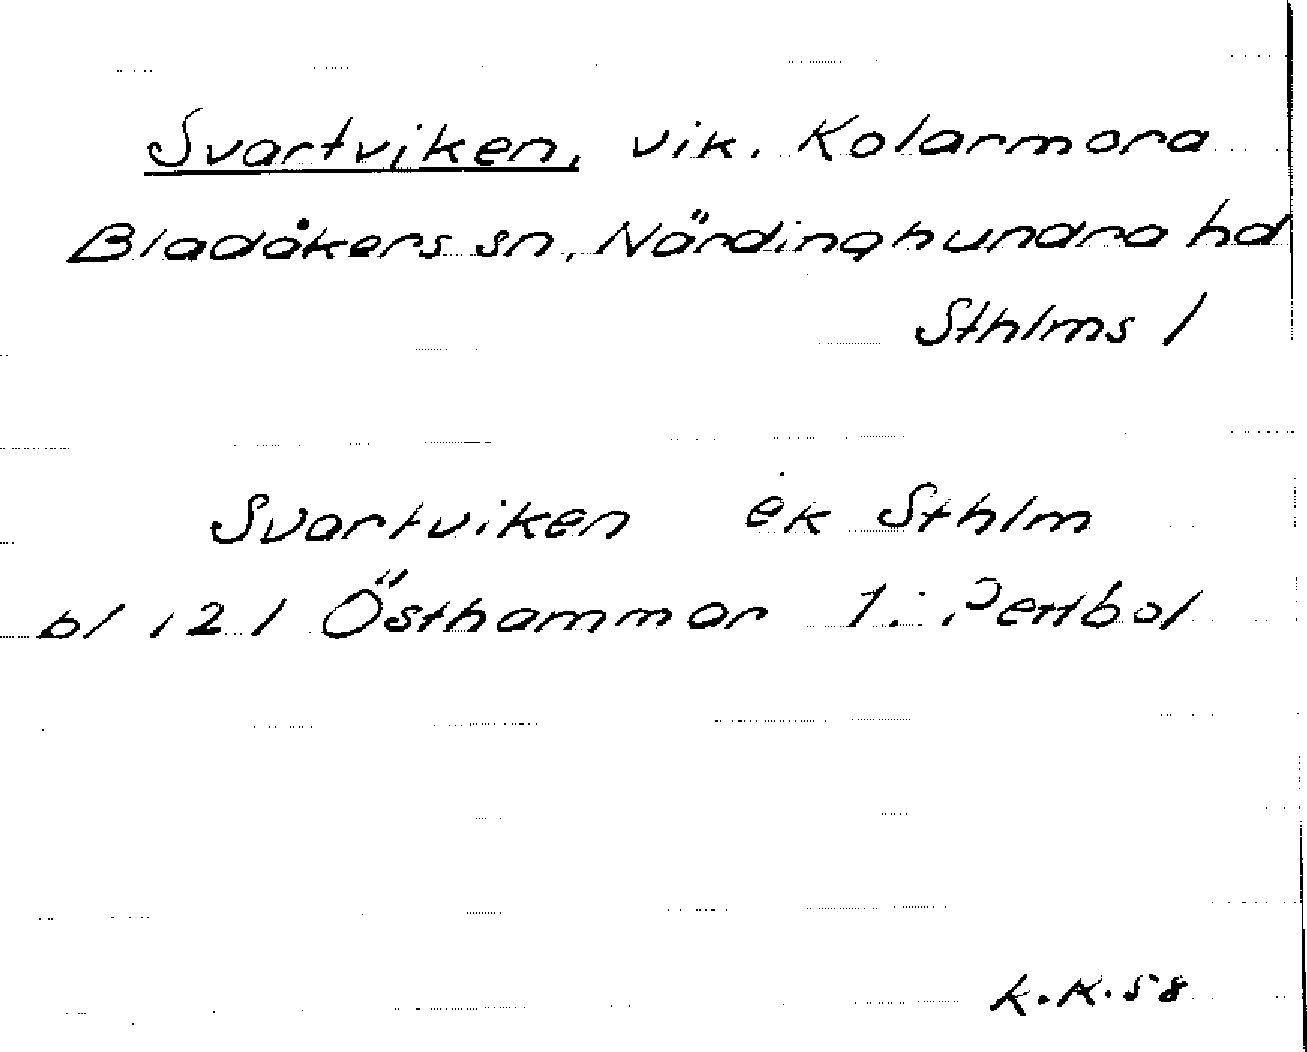 Svartviken, vik. Kolarmora
Bladåkers sn, Närdinghundra hd
Sthlms l
Svartviken ek Sthlm
bl 121 Östhammar 1. Pettbol
K.K.58